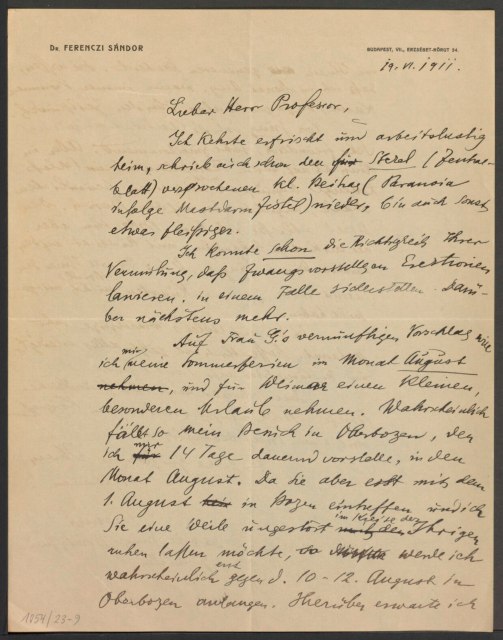 Dr. FERENCZI SÁNDOR
BUDAPEST, VII., ERZSÉBET-KÖRUT 54.
19. VI. 1911.
Lieber Herr Professor,
Ich kehrte erfrischt und arbeitslustig
heim, schrieb auch schon den für Stekel (Zentral-
blatt) versprochenen kl. Beitrag (Paranoia
infolge Mastdarmfistel) nieder, bin auch sonst
etwas fleißiger.
Ich konnte schon die Richtigkeit Ihrer
Vermutung, daß Zwangsvorstellgen Erektionen
, in einem Falle sicherstellen. Darü-
ber nächstens mehr.
Auf Frau G.'s vernünftigen Vorschlag will
ich mir meine Sommerferien im Monat August
nehmen, und für Weimar einen kleinen,
besonderen Urlaub nehmen. Wahrscheinlich
fällt so mein Besuch in Oberbozen, den
ich mir für 14 Tage dauernd vorstelle, in den
Monat August. Da Sie aber erst mit dem
1. August in Bozen eintreffen und ich
Sie eine Weile ungestört im Kreise der Ihrigen
ruhen laßen möchte, so werde ich
wahrscheinlich erst gegen d. 10-12. August in
Oberbozen anlangen. Hierüber erwarte ich
1854/23-9